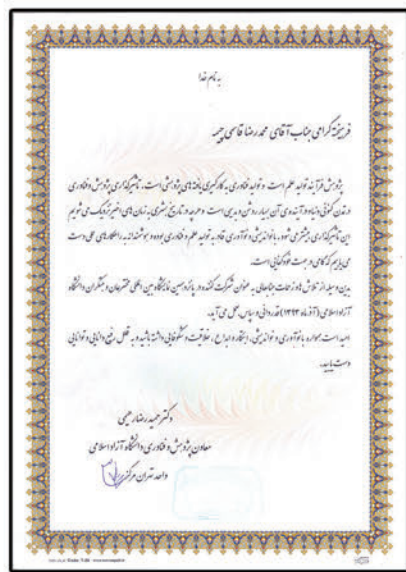 به نام خدا
فرهیخته گرامی جناب آقای محمدرضا قاسمی چیمه
پژوهش فرآیند تولید علم است و تولید فناوری به کارگیری یافته های پژوهشی است. تأثیرگذاری پژوهش و فناوری
در تمدن کنونی دنیا و در آینده ی آن بسیار روشن و بدیهی است و هرچه در تاریخ بشری به زمان های اخیر نزدیک می شویم
این تأثیرگذاری بیشتر می شود. با نواندیشی و نوآوری قادر به تولید علم و فناوری بوده و هوشمندانه به راهکارهای عملی دست
می یابیم که گامی در جهت خودکفایی است.
بدین وسیله از تلاش ها و زحمات جنابعالی به عنوان شرکت کننده در پانزدهمین نمایشگاه بین المللی مخترعان و مبتکران دانشگاه
آزاد اسلامی (آذرماه ۱۳۹۳) قدردانی و سپاس به عمل می آید.
امید است همواره با نوآوری و نواندیشی، ابتکار و ابداع، خلاقیت و شکوفایی داشته باشید و به قلل رفیع دانایی و توانایی
دست یابید.
دکتر حمیدرضا رحیمی
معاون پژوهش و فناوری دانشگاه آزاد اسلامی
واحد تهران مرکزی